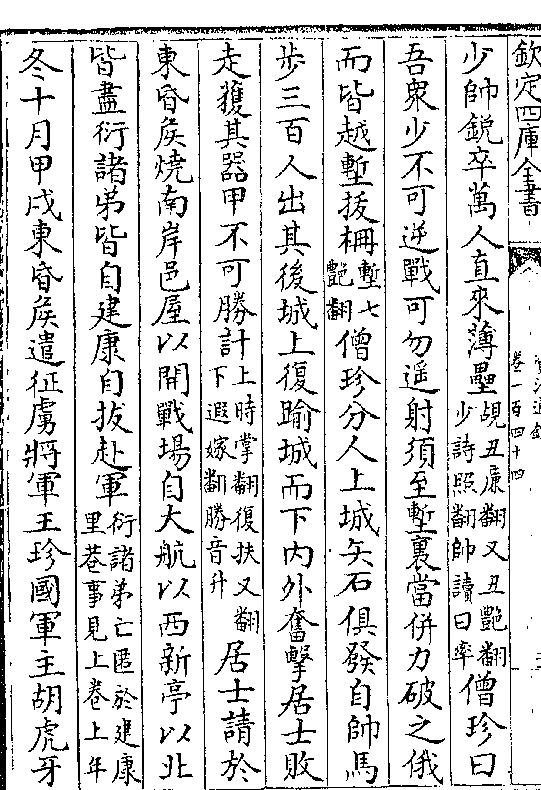 欽定四庫全書
資治通鑑
卷一百四十四
少帥銳卒萬人直來薄壘覘丑廉翻又丑艷翻少詩照翻帥讀曰率僧珍曰
吾衆少不可逆戰可勿遥射須至塹裏當併力破之俄
而皆越塹拔柵塹七艷翻僧珍分人上城矢石俱發自帥馬
歩三百人出其後城上復踰城而下内外奮擊居士敗
走獲其器甲不可勝計上時掌翻復扶又翻下遐嫁翻勝音升居士請於
東昏侯燒南岸邑屋以開戰場自大航以西新亭以北
皆盡衍諸弟皆自建康自拔赴軍衍諸弟亡匿於建康里巷事見上卷上年
冬十月甲戌東昏侯遣征虜將軍王珍國軍主胡虎牙